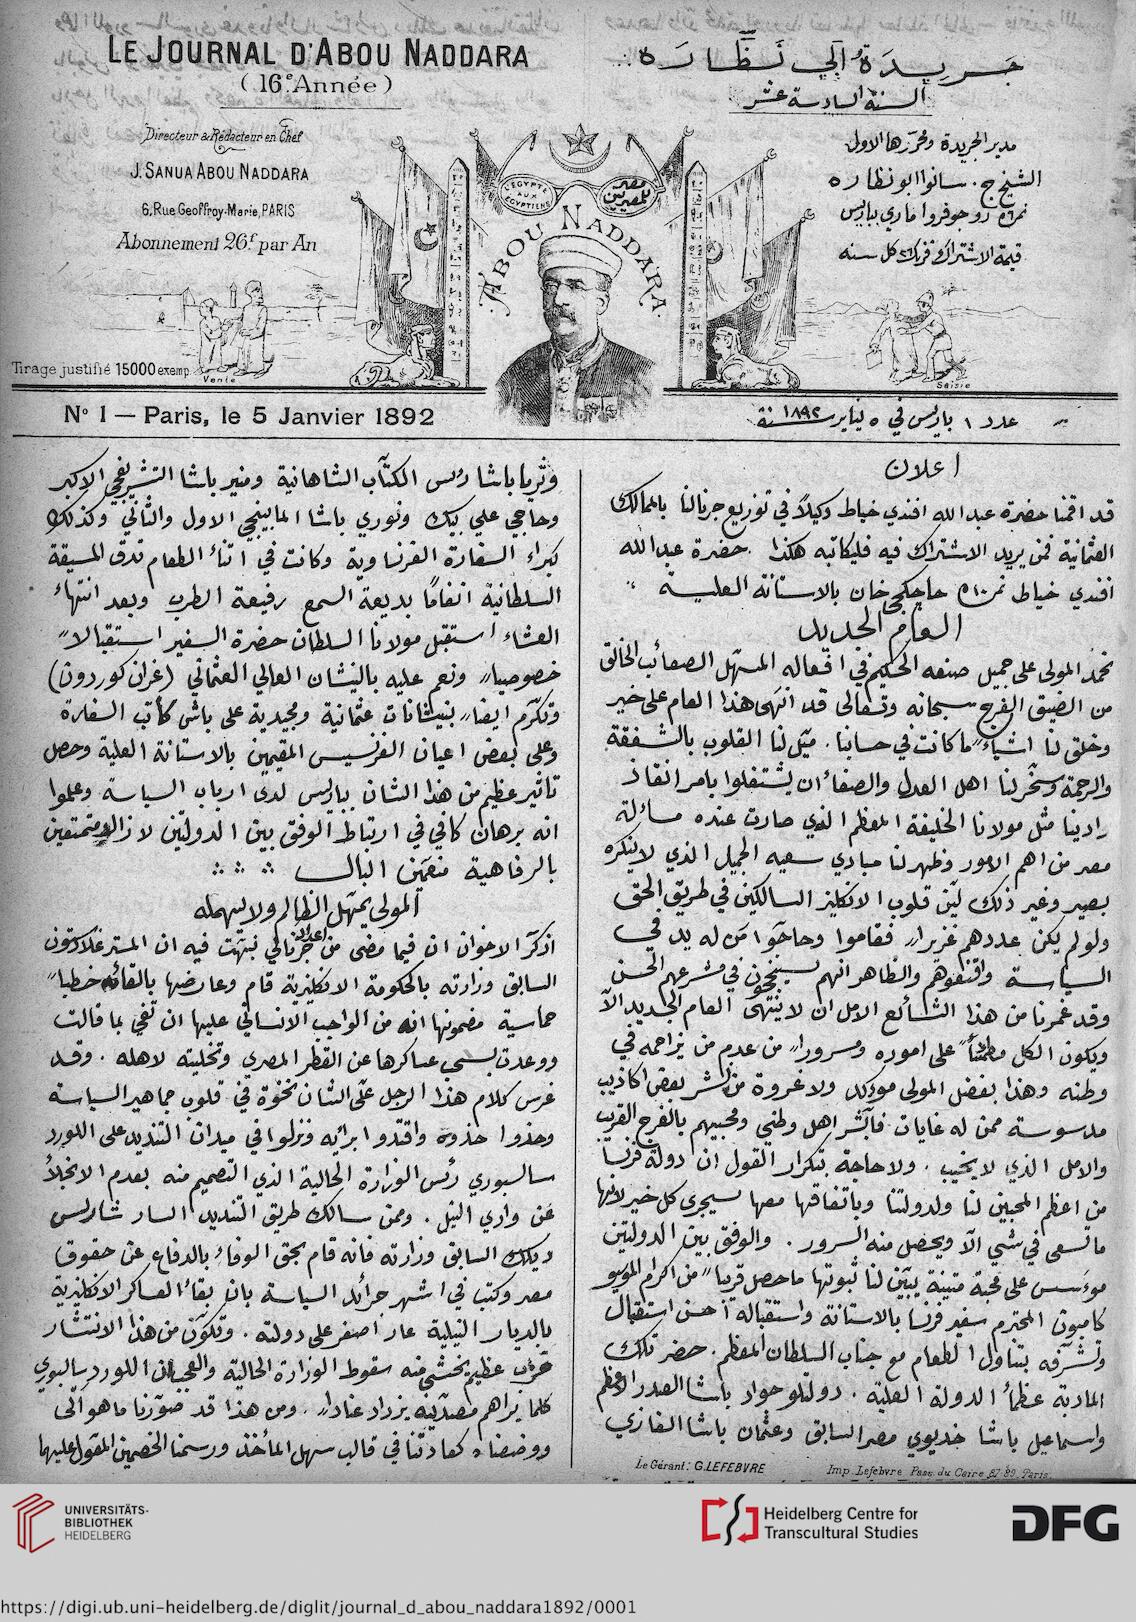 LE JOURNAL D'ABOU NADDARA
( 16e. Année )
Directeur & Rédacteur en Chef
J. SANUA ABOU NADDARA
6, Rue Geoffroy-Marie, PARIS
Abonnement 26f par An
Tirage justifié 15000 exemp.
Vente
L'EGYPTE AUX EGYPTIENS
مصر للمصريين
ABOU NADDARA
جريدة ابي نظارة
السنة السادسة عشر
مدير الجريدة ومحررها الاول
الشيخ ج. سانوا ابو نظاره
نمرة ٦ رو جوفروا ماري بباريس
قيمة الاشتراك فرنك ٢٦ كل سنه
Saisie
No 1 — Paris, le 5 Janvier 1892
عدد ١ باريس في ٥ يناير سنة ١٨٩٢
اعلان
قد اقمنا حضرة عبد الله افندي خياط وكيلاً في توزيع جرنالنا بالممالك
العثمانية فمن يريد الاشتراك فيه فليكاتبه هكذا . حضرة عبد الله
افندي خياط نمرة ١٠ خان بالاستانة العلية
العام الجديد
نحمد المولى على جميل صنعه الحكيم في افعاله المسهل الصعائب الخالق
من الضيق الفرج سبحانه وتعالى قد انهى هذا العام على خير
وخلق لنا اشياء ما كانت في حسابنا . ميّل لنا القلوب بالشفقة
والرحمة وسخّر لنا اهل العدل والصفا ان يشتغلوا بامر انقاذ
رادينا مثل مولانا الخليفة المعظم الذي صارت عنده مسالة
مصر من اهم الامور وظهر لنا مبادي سعيه الجميل الذي لا ينكره
بصير وغير ذلك ليّن قلوب الانكليز السالكين في طريق الحق
ولو لم يكن عددهم غزيرا فقاموا وحاجّوا من له يد في
السياسة واقنعوهم والظاهر انهم سينجحون في مشرعهم الحسن
وقد غمرنا من هذا الشائع الامل ان لا ينتهى العام الجديد الا
ويكون الكل مطمئناً على اموره ومسرورا من عدم من يزاحمه في
وطنه وهذا بفضل المولى موكد ولا غروة من نشر بعض اكاذيب
مدسوسة ممن له غايات فابشر اهل وطني ومحبيهم بالفرج القريب
والامل الذي لا يخيب . ولا حاجة بتكرار القول ان دولة فرنسا
من اعظم المحبين لنا ولدولتنا وباتفاقها معها سيجري كل خير لانها
ما تسعى في شي الا ويحصل منه السرور . والوفق بين الدولتين
موسس على محبة متينة يبيّن لنا ثبوتها ما حصل قريبا من اكرام الموسيو
كامبون المحترم سفير فرنسا بالاستانة واستقباله احسن استقبال
وتشرّفه بتناول الطعام مع جناب السلطان المعظم . حضر تلك
المادبة عظما الدولة العلية . دولتلو جواد باشا الصدر الاعظم
واسماعيل باشا خديوي مصر السابق وعثمان باشا الغازي
وثريا باشا رئيس الكتّاب الشاهانية ومنير باشا التشريفجي الاكبر
وحاجي علي بيك ونوري باشا المابينجي الاول والثاني وكذلك
كبراء السفارة الفرنساوية وكانت في اثناء الطعام تدق المسيقة
السلطانية انغاماً بديعة السمع رفيعة الطرب وبعد انتهاء
العشاء استقبل مولانا السلطان حضرة السفير استقبالا
خصوصيا ونعم عليه بالنيشان العالي العثماني (غران كوردون)
وتكرّم ايضا بنيشانات عثمانية ومجيدية على باش كاتب السفارة
وعلى بعض اعيان الفرنسيس المقيمين بالاستانة العلية وحصل
تاثير عظيم من هذا الشان بباريس لدى ارباب السياسة وعلموا
انه برهان كافي في ارتباط الوفق بين الدولتين لازالو متمتعين
بالرفاهية منعمين البال
المولى يمهل الظالم ولا يهمله
اذكر الاخوان ان فيما مضى من اعداد جرنالي نبهت فيه ان المستر غلادستون
السابق وزارته بالحكومة الانكليزية قام وعارضها بالقائه خطبا
حماسية مضمونها انه من الواجب الانساني عليها ان تفي بما قالت
ووعدت بسحب عساكرها عن القطر المصري وتخليته لاهله . وقد
غرس كلام هذا الرجل عليّ الشان نخوة في قلوب جماهير السياسة
وحذوا حذوه واقتدوا برائه ونزلوا في ميدان التنديد على اللورد
سالسبوري رئس الوزارة الحالية الذي التصميم منه بعدم الانجلأ
عن وادي النيل . وممن سالك طريق التنديد السار شارلس
ديلك السابق وزارته فانه قام بحق الوفاء بالدفاع عن حقوق
مصر وكتب في اشهر جرائد السياسة بان بقاء العساكر الانكليزية
بالديار النيلية عار اصغر على دولته . وتكوّن من هذا الانتشار
حزب عظيم يخشى منه سقوط الوزارة الحالية والعجب ان اللورد سالسبوري
كلما يراهم مصدّينه يزداد عنادا . ومن هذا قد صوّرنا ما هو اتى
ووضعناه كعادتنا في قالب سهل الماخذ ورسمنا الخصمين المقول عليها
Le Gérant: G. LEFEBVRE
Imp. Lefebvre Pass. du Caire 87-89. Paris.
UNIVERSITÄTS-
BIBLIOTHEK
HEIDELBERG
Heidelberg Centre for
Transcultural Studies
DFG
https://digi.ub.uni-heidelberg.de/diglit/journal_d_abou_naddara1892/0001